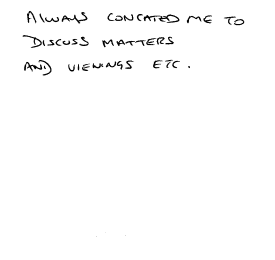 ALWAYS CONCATED ME TO
DISCUSS MATTERS
AND VIENINGS ETC.